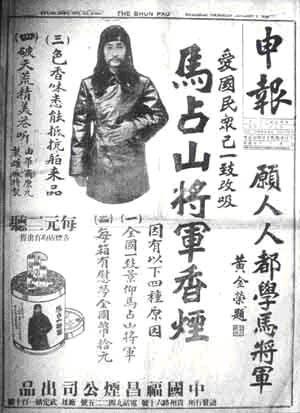 THE SHUN PAO
申報
願人人都學馬將軍
黃金榮題
愛國民衆已一致改吸
馬占山將軍香煙
因有以下四種原因
(一)全國一致景仰馬占山將軍
(二)每箱有慰勞金國幣拾元
(三)色香味悉能抵抗舶來品
(四)破天荒精美恩听
每元二聽
各煙店均有出售
中國福昌煙公司出品